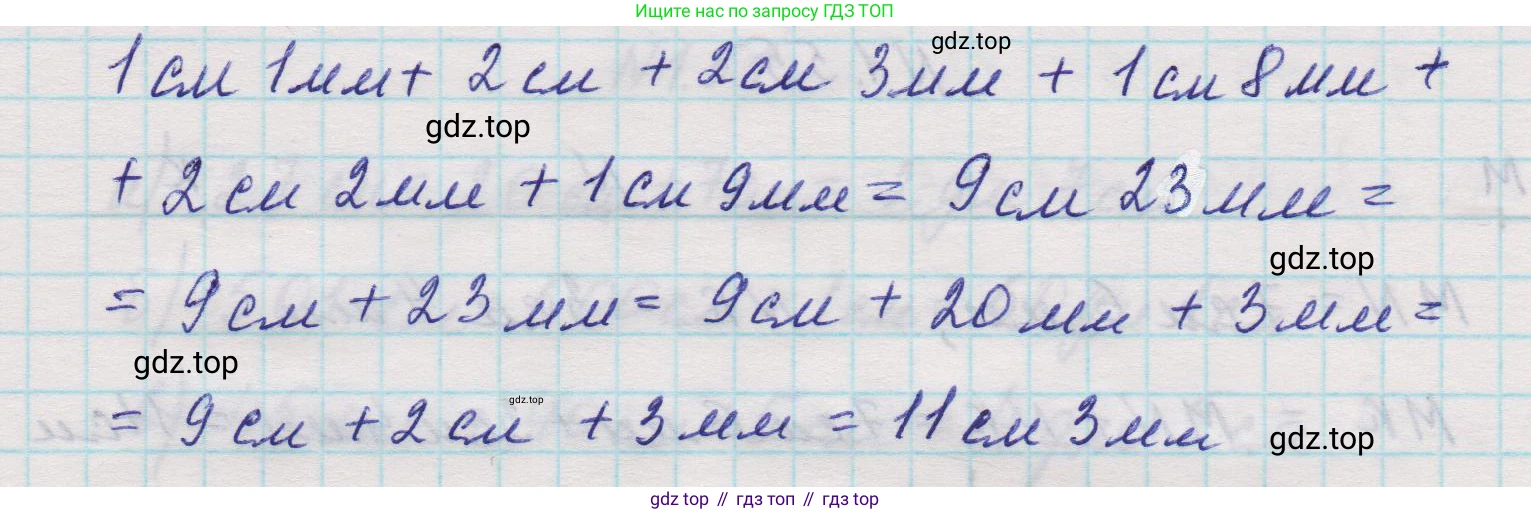 Ищите нас по запросу ГДЗ ТОП
gdz.top
1 см 1 мм + 2 см + 2 см 3 мм + 1 см 8 мм +
gdz.top
+ 2 см 2 мм + 1 см 9 мм = 9 см 23 мм =
gdz.top
= 9 см + 23 мм = 9 см + 20 мм + 3 мм =
gdz.top
gdz.top
= 9 см + 2 см + 3 мм = 11 см 3 мм
gdz.top
gdz top // гдз топ // гдз top